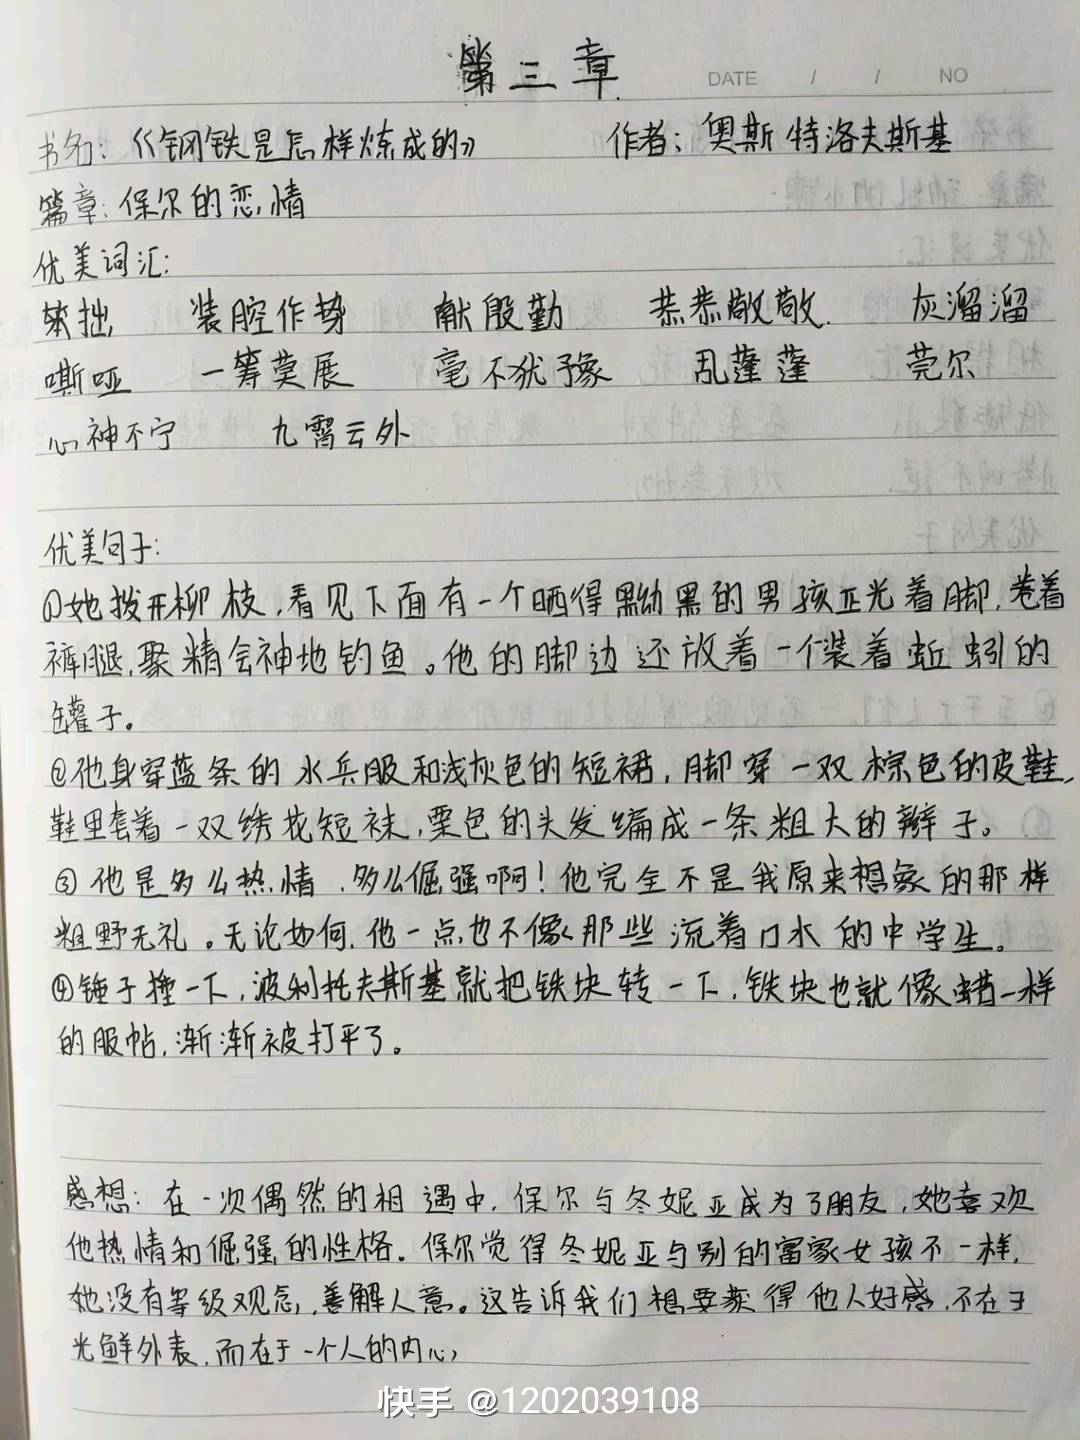 第三章
DATE / / NO
书名：《钢铁是怎样炼成的》 作者：奥斯特洛夫斯基
篇章：保尔的恋情
优美词汇：
笨拙 装腔作势 献殷勤 恭恭敬敬 灰溜溜
嘶哑 一筹莫展 毫不犹豫 乱蓬蓬 莞尔
心神不宁 九霄云外
优美句子：
①她拨开柳枝，看见下面有一个晒得黝黑的男孩正光着脚，卷着
裤腿，聚精会神地钓鱼。他的脚边还放着一个装着蚯蚓的
罐子。
②他身穿蓝条的水兵服和浅灰色的短裙，脚穿一双棕色的皮鞋，
鞋里套着一双绣花短袜，栗色的头发编成一条粗大的辫子。
③他是多么热情，多么倔强啊！他完全不是我原来想象的那样
粗野无礼。无论如何，他一点也不像那些流着口水的中学生。
④锤子捶一下，波利托夫斯基就把铁块转一下，铁块也就像蜡一样
的服帖，渐渐被打平了。
感想：在一次偶然的相遇中，保尔与冬妮亚成为了朋友，她喜欢
他热情和倔强的性格。保尔觉得冬妮亚与别的富家女孩不一样，
她没有等级观念，善解人意。这告诉我们想要获得他人好感，不在于
光鲜外表，而在于一个人的内心，
快手 @1202039108